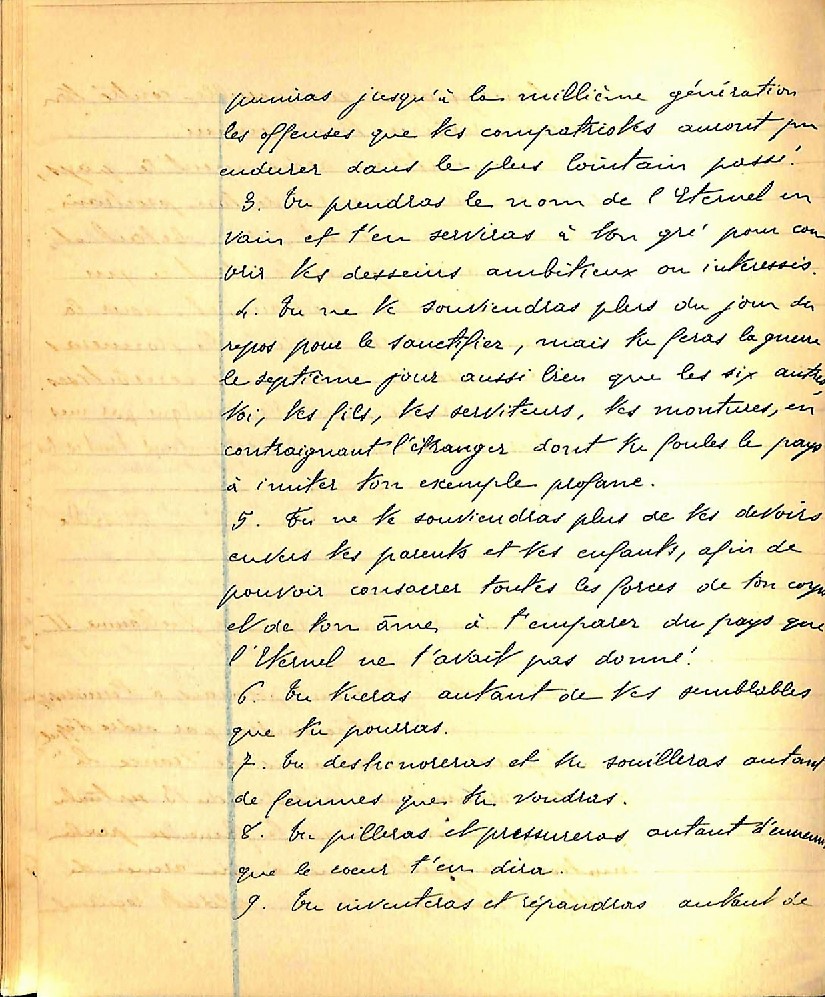 puniras jusqu'à la millième génération
les offenses que tes compatriotes auront pu
endurer dans le plus lointain passé.
3. Tu prendras le nom de l'Eternel en
vain et t'en serviras à ton gré pour cou
vrir tes desseins ambitieux ou intéressés.
4. Tu ne te souviendras plus du jour du
repos pour le sanctifier, mais tu feras la guerre
le septième jour aussi bien que les six autres,
toi, tes fils, tes serviteurs, tes montures, en
contraignant l'étranger dont tu foules le pays
à imiter ton exemple profane.
5. Tu ne te souviendras plus de tes devoirs
envers tes parents et tes enfants, afin de
pouvoir consacrer toutes les forces de ton corps
et de ton âme, à t'emparer du pays que
l'Eternel ne t'avait pas donné.
6. Tu tueras autant de tes semblables
que tu pourras.
7. Tu deshonoreras et tu souilleras autant
de femmes que tu voudras.
8. Tu pilleras et pressureras autant d'ennemis
que le coeur t'en dira.
9. Tu inventeras et répandras autant de